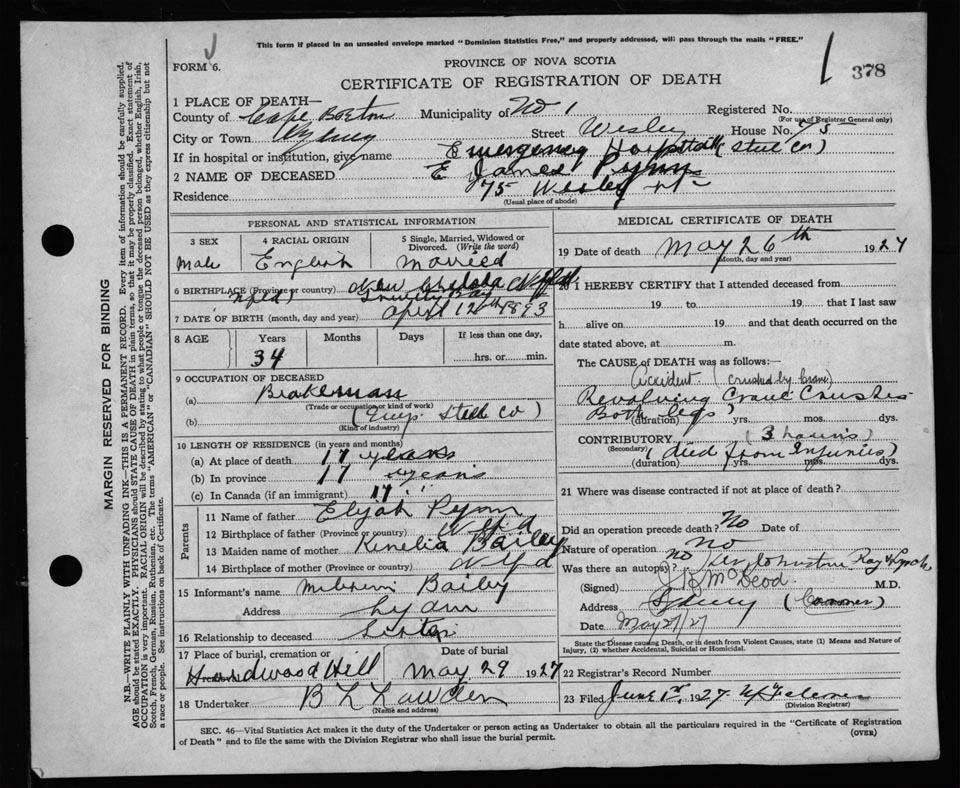 This form if placed in an unsealed envelope marked "Dominion Statistics Free," and properly addressed, will pass through the mails "FREE."
FORM 6.
PROVINCE OF NOVA SCOTIA
378
CERTIFICATE OF REGISTRATION OF DEATH
MARGIN RESERVED FOR BINDING
N.B.—WRITE PLAINLY WITH UNFADING INK—THIS IS A PERMANENT RECORD. Every item of information should be carefully supplied.
AGE should be stated EXACTLY. PHYSICIANS should STATE CAUSE OF DEATH in plain terms, so that it may be properly classified. Exact statement of
OCCUPATION is very important. RACIAL ORIGIN will be described by stating to what people or tongue the deceased person belonged, whether English, Irish,
Scotch, French, German, Russian, Ruthenian, etc. The terms "AMERICAN" or "CANADIAN" SHOULD NOT BE USED as they express citizenship but not
a race or people. See instructions on back of Certificate.
1 PLACE OF DEATH—
County of Cape Breton Municipality of No 1 Registered No.
(For use of Registrar General only)
City or Town Sydney Street Wesley House No. 75
If in hospital or institution, give name Emergency Hospital (Steel Co)
2 NAME OF DECEASED E James Pynn
Residence 75 Wesley St
(Usual place of abode)
PERSONAL AND STATISTICAL INFORMATION
3 SEX Male
4 RACIAL ORIGIN English
5 Single, Married, Widowed or Divorced. (Write the word) Married
6 BIRTHPLACE (Province or country) Nfld
7 DATE OF BIRTH (month, day and year) April 12th 1893
8 AGE Years Months Days If less than one day,
34 hrs. or min.
9 OCCUPATION OF DECEASED
(a) Brakeman
(Trade or occupation or kind of work)
(b) (Emp. Steel Co)
(Kind of industry)
10 LENGTH OF RESIDENCE (in years and months)
(a) At place of death 17 years
(b) In province 17 years
(c) In Canada (if an immigrant) 17 "
Parents
11 Name of father Elijah Pynn
12 Birthplace of father (Province or country) Nfld
13 Maiden name of mother Bailey
14 Birthplace of mother (Province or country) Nfld
15 Informant's name Bailey
Address
16 Relationship to deceased
17 Place of burial, cremation or Date of burial
Hardwood Hill May 29 1927
18 Undertaker
(Name and address)
MEDICAL CERTIFICATE OF DEATH
19 Date of death May 26th 1927
(Month, day and year)
20 I HEREBY CERTIFY that I attended deceased from
19 to 19 that I last saw
h alive on 19 and that death occurred on the
date stated above, at m.
The CAUSE OF DEATH was as follows:
Accident (crushed by crane)
Revolving Crane Crushes
Both legs
(duration) yrs. mos. dys.
CONTRIBUTORY (3 hours)
(Secondary) (died from Injuries)
(duration) yrs. mos. dys.
21 Where was disease contracted if not at place of death?
Did an operation precede death? No Date of
Nature of operation no
Was there an autopsy? no
(Signed) McLeod M.D.
Address Sydney (Coroner)
Date May 27/27
State the Disease causing Death, or in death from Violent Causes, state (1) Means and Nature of
Injury, (2) whether Accidental, Suicidal or Homicidal.
22 Registrar's Record Number
23 Filed June 1st 1927
(Division Registrar)
SEC. 46—Vital Statistics Act makes it the duty of the Undertaker or person acting as Undertaker to obtain all the particulars required in the "Certificate of Registration
of Death" and to file the same with the Division Registrar who shall issue the burial permit.
(OVER)